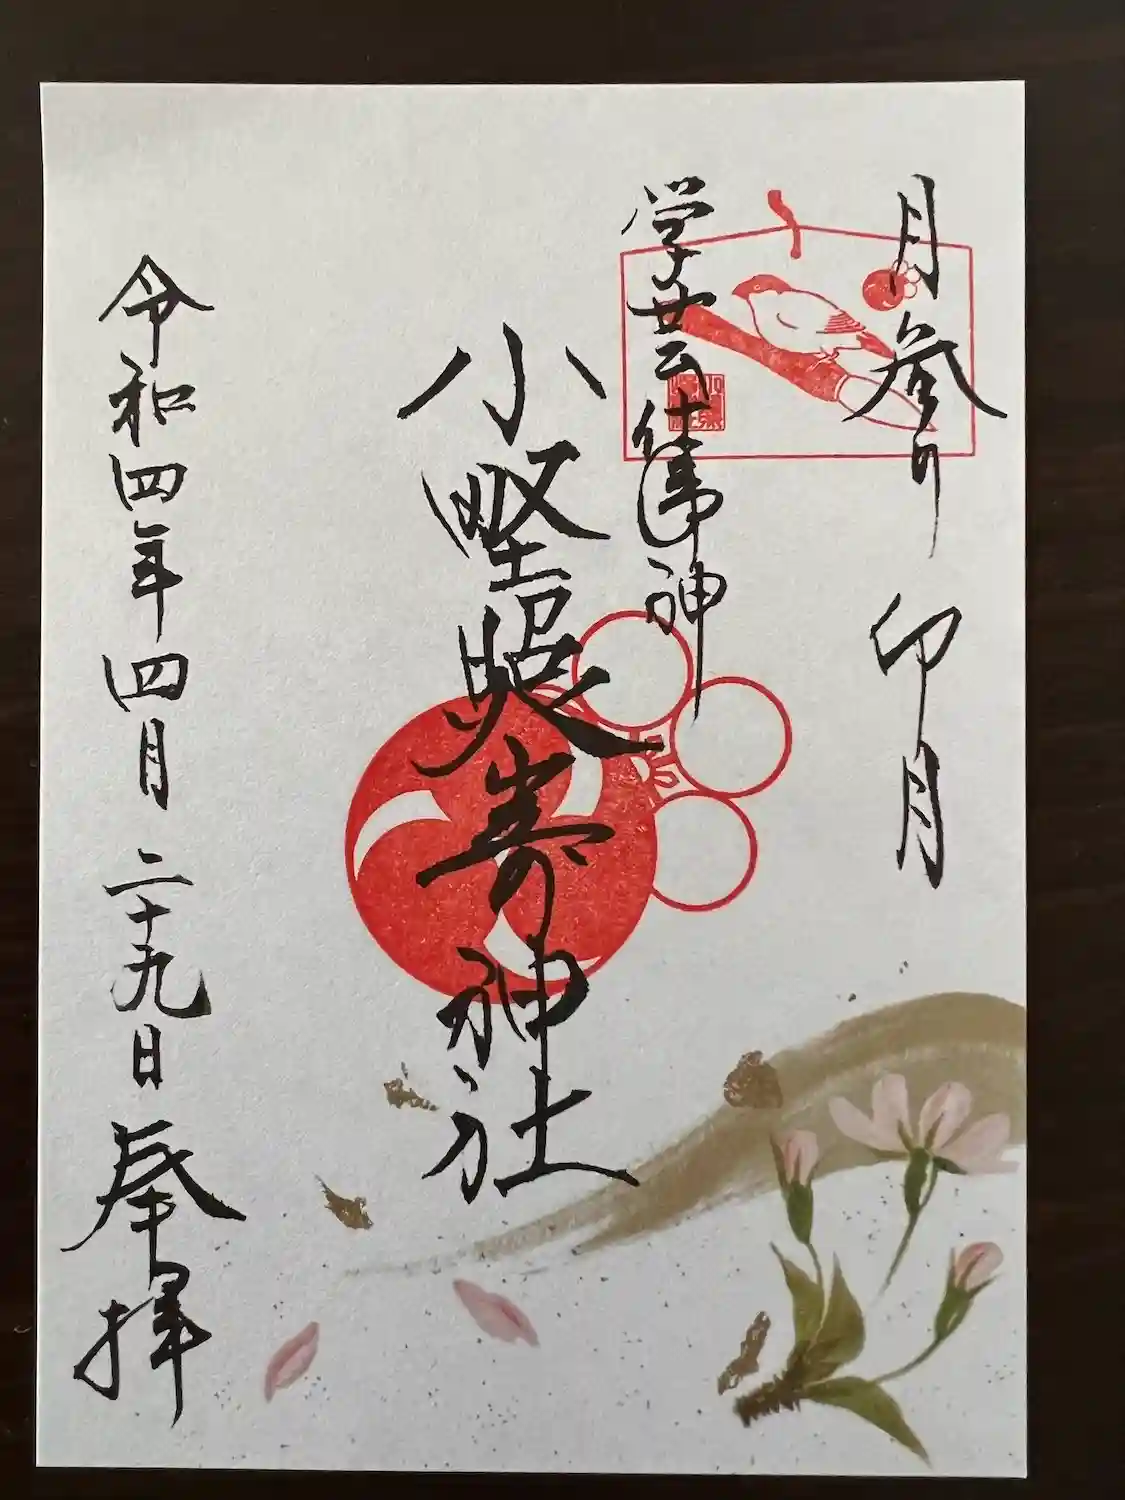 月参り 卯月
学芸仕事神
小野照嵜神社
令和四年四月二十九日 奉拝